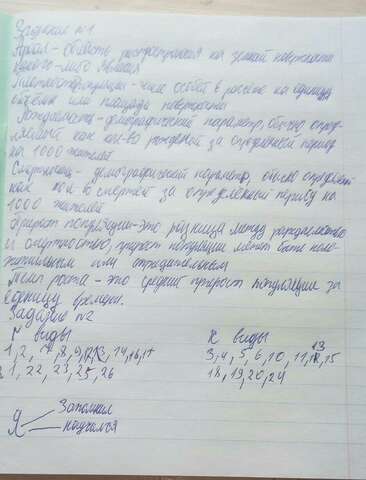 Задание №1
Ареал - область распространения на земной поверхности
какого-либо явления
Плотность популяции - число особей в расчёте на единицу
объёма или площади поверхности
Рождаемость - демографический параметр, обычно опред-
ляемый как кол-во рождений за определенный период
на 1000 жителей
Смертность - демографический параметр, обычно
как кол-во смертей за определенный период на
1000 жителей
Прирост популяции - это разница между рождаемостью
и смертностью, прирост популяции может быть поло-
жительным или отрицательным
Темп роста - это средний прирост популяции за
единицу времени.
Задание №2
r виды
K виды
1, 2, 7, 8, 9, 14, 16, 17
3, 4, 5, 6, 10, 11, 13, 15
21, 22, 23, 25, 26
18, 19, 20, 24
Запомнил
Я
научился